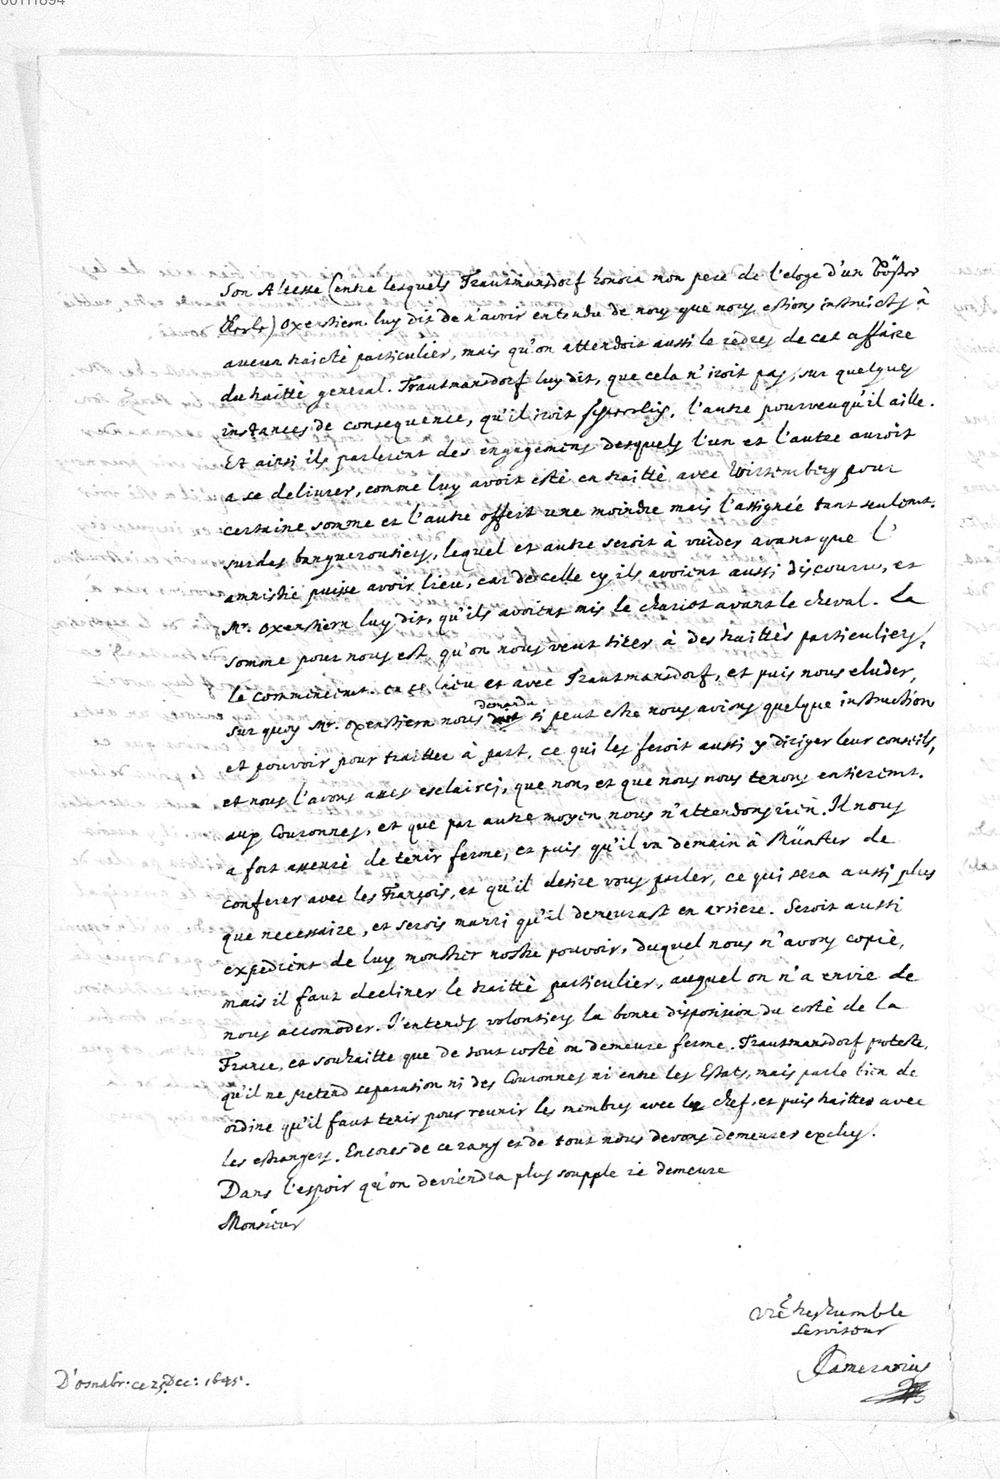 00111894
Son Altesse (entre lesquels Trautmansdorf honora mon pere de l'eloge d'un böser
Kerls) Oxenstiern luy dit de n'avoir entendu de nous que nous estions instruicts à
aucun traicté particulier, mais qu'on attendoit aussi le redres de cet affaire
du traitté general. Trautmansdorf luy dit, que cela n'iroit pas, sur quelques
instances de consequence, qu'il iroit, l'autre pourveu qu'il aille.
Et ainsi ils parlerent des engagemens desquels l'un et l'autre auroit
a se delivrer, comme luy avoit esté en traitté avec Wirtemberg pour
certaine somme et l'autre offrit une moindre mais l'assignée tant seulemt.
sur des banqueroutiers, lequel et autre seroit à vuider avant que l'
amnistie puisse avoir lieu, car de celle cy ils avoient aussi discouru, et
Mr. Oxenstiern luy dit, qu'ils avoient mis le chariot avant le cheval. La
somme pour nous est qu'on nous veut tirer à des traittés particuliers,
le commencemt. en ce lieu et avec Trautmansdorf, et puis nous eluder,
sur quoy Mr. Oxenstiern nous demanda si peut estre nous avions quelque instruction
et pouvoir pour traitter à part, ce qui les feroit aussi y diriger leur conseils,
et nous l'avons assés esclairci, que non, et que nous nous tenons entieremt.
aux Couronnes, et que par autre moyen nous n'attendons rien. Il nous
a fort asseuré de tenir ferme, et puis qu'il va demain à Münster de
conferer avec les François, et qu'il desire vous parler, ce qui sera aussi plus
que necessaire, et serois marri qu'il demeurast en arriere. Seroit aussi
expedient de luy monstrer nostre pouvoir, duquel nous n'avons copie,
mais il faut decliner le traitté particulier, auquel on n'a envie de
nous accomoder. J'entends volontiers la bonne disposition du costé de la
France, et souhaitte que de tout costé on demeure ferme. Trautmansdorf proteste,
qu'il ne pretend separation ni des Couronnes ni entre les Estats, mais parle bien de
ordine qu'il faut tenir pour reunir les membres avec le chef, et puis traitter avec
les estrangers. Encores de ce rang et de tout nous devons demeurer exclus.
Dans l'espoir qu'on deviendra plus soupple ie demeure
Monsieur
Vre. treshumble
serviteur
Camerarius
D'Osnabr. ce 25. Dec: 1645.